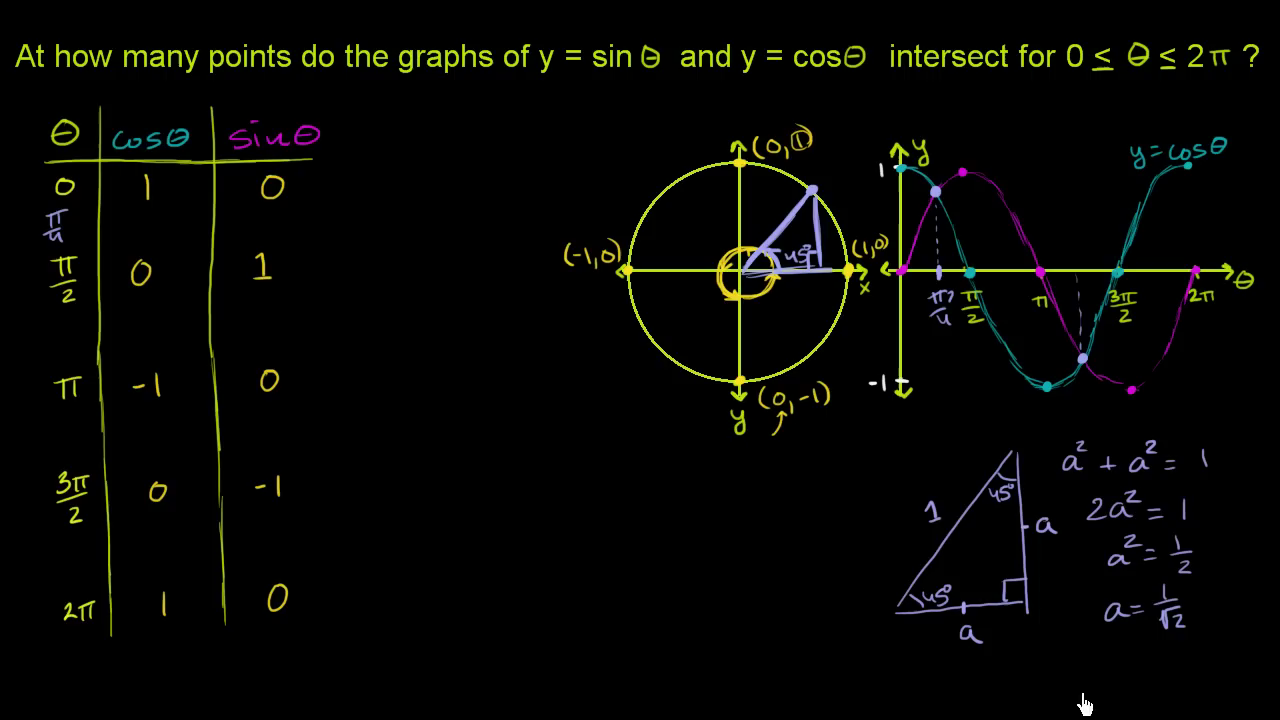 At how many points do the graphs of y = sin θ and y = cosθ intersect for 0 ≤ θ ≤ 2π ?
θ cosθ sinθ
0 1 0
π/4
π/2 0 1
π -1 0
3π/2 0 -1
2π 1 0
(0, 1)
(-1, 0)
45°
(1, 0)
x
(0, -1)
y
y
y = cosθ
1
π/4 π/2 π 3π/2 2π θ
-1
45°
1
a
45°
a
a² + a² = 1
2a² = 1
a² = 1/2
a = 1/√2